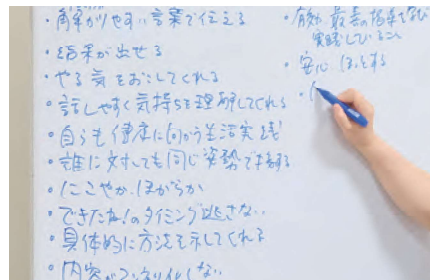 ・解りやすい言葉で伝える
・結果が出せる
・やる気をおこしてくれる
・話しやすく気持ちを理解してくれる
・自らも健康に向かう生活実践
・誰に対しても同じ姿勢で接する
・にこやか、ほがらか
・できたね!のタイミング逃さない
・具体的に方法を示してくれる
・内容がマンネリ化しない
・有効、最善の
実践していること
・安心 ほっとする